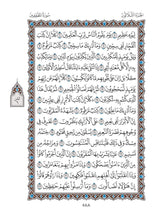 الجزء الثلاثون سورة المطففين
لِيَوْمٍ عَظِيمٍ ٥ يَوْمَ يَقُومُ النَّاسُ لِرَبِّ الْعَالَمِينَ ٦
كَلَّا إِنَّ كِتَابَ الْفُجَّارِ لَفِي سِجِّينٍ ٧ وَمَا أَدْرَاكَ مَا سِجِّينٌ ٨
كِتَابٌ مَرْقُومٌ ٩ وَيْلٌ يَوْمَئِذٍ لِلْمُكَذِّبِينَ ١٠ الَّذِينَ يُكَذِّبُونَ
بِيَوْمِ الدِّينِ ١١ وَمَا يُكَذِّبُ بِهِ إِلَّا كُلُّ مُعْتَدٍ أَثِيمٍ ١٢ إِذَا تُتْلَى
عَلَيْهِ آيَاتُنَا قَالَ أَسَاطِيرُ الْأَوَّلِينَ ١٣ كَلَّا بَلْ رَانَ عَلَى قُلُوبِهِمْ مَا
كَانُوا يَكْسِبُونَ ١٤ كَلَّا إِنَّهُمْ عَنْ رَبِّهِمْ يَوْمَئِذٍ لَمَحْجُوبُونَ ١٥
ثُمَّ إِنَّهُمْ لَصَالُوا الْجَحِيمِ ١٦ ثُمَّ يُقَالُ هَذَا الَّذِي كُنْتُمْ بِهِ تُكَذِّبُونَ ١٧
كَلَّا إِنَّ كِتَابَ الْأَبْرَارِ لَفِي عِلِّيِّينَ ١٨ وَمَا أَدْرَاكَ مَا عِلِّيُّونَ ١٩
كِتَابٌ مَرْقُومٌ ٢٠ يَشْهَدُهُ الْمُقَرَّبُونَ ٢١ إِنَّ الْأَبْرَارَ لَفِي نَعِيمٍ ٢٢
عَلَى الْأَرَائِكِ يَنْظُرُونَ ٢٣ تَعْرِفُ فِي وُجُوهِهِمْ نَضْرَةَ النَّعِيمِ ٢٤
يُسْقَوْنَ مِنْ رَحِيقٍ مَخْتُومٍ ٢٥ خِتَامُهُ مِسْكٌ وَفِي ذَلِكَ فَلْيَتَنَافَسِ
الْمُتَنَافِسُونَ ٢٦ وَمِزَاجُهُ مِنْ تَسْنِيمٍ ٢٧ عَيْنًا يَشْرَبُ بِهَا الْمُقَرَّبُونَ ٢٨
إِنَّ الَّذِينَ أَجْرَمُوا كَانُوا مِنَ الَّذِينَ آمَنُوا يَضْحَكُونَ ٢٩ وَإِذَا مَرُّوا بِهِمْ
يَتَغَامَزُونَ ٣٠ وَإِذَا انْقَلَبُوا إِلَى أَهْلِهِمُ انْقَلَبُوا فَكِهِينَ ٣١ وَإِذَا رَأَوْهُمْ قَالُوا
إِنَّ هَؤُلَاءِ لَضَالُّونَ ٣٢ وَمَا أُرْسِلُوا عَلَيْهِمْ حَافِظِينَ ٣٣
٥٨٨